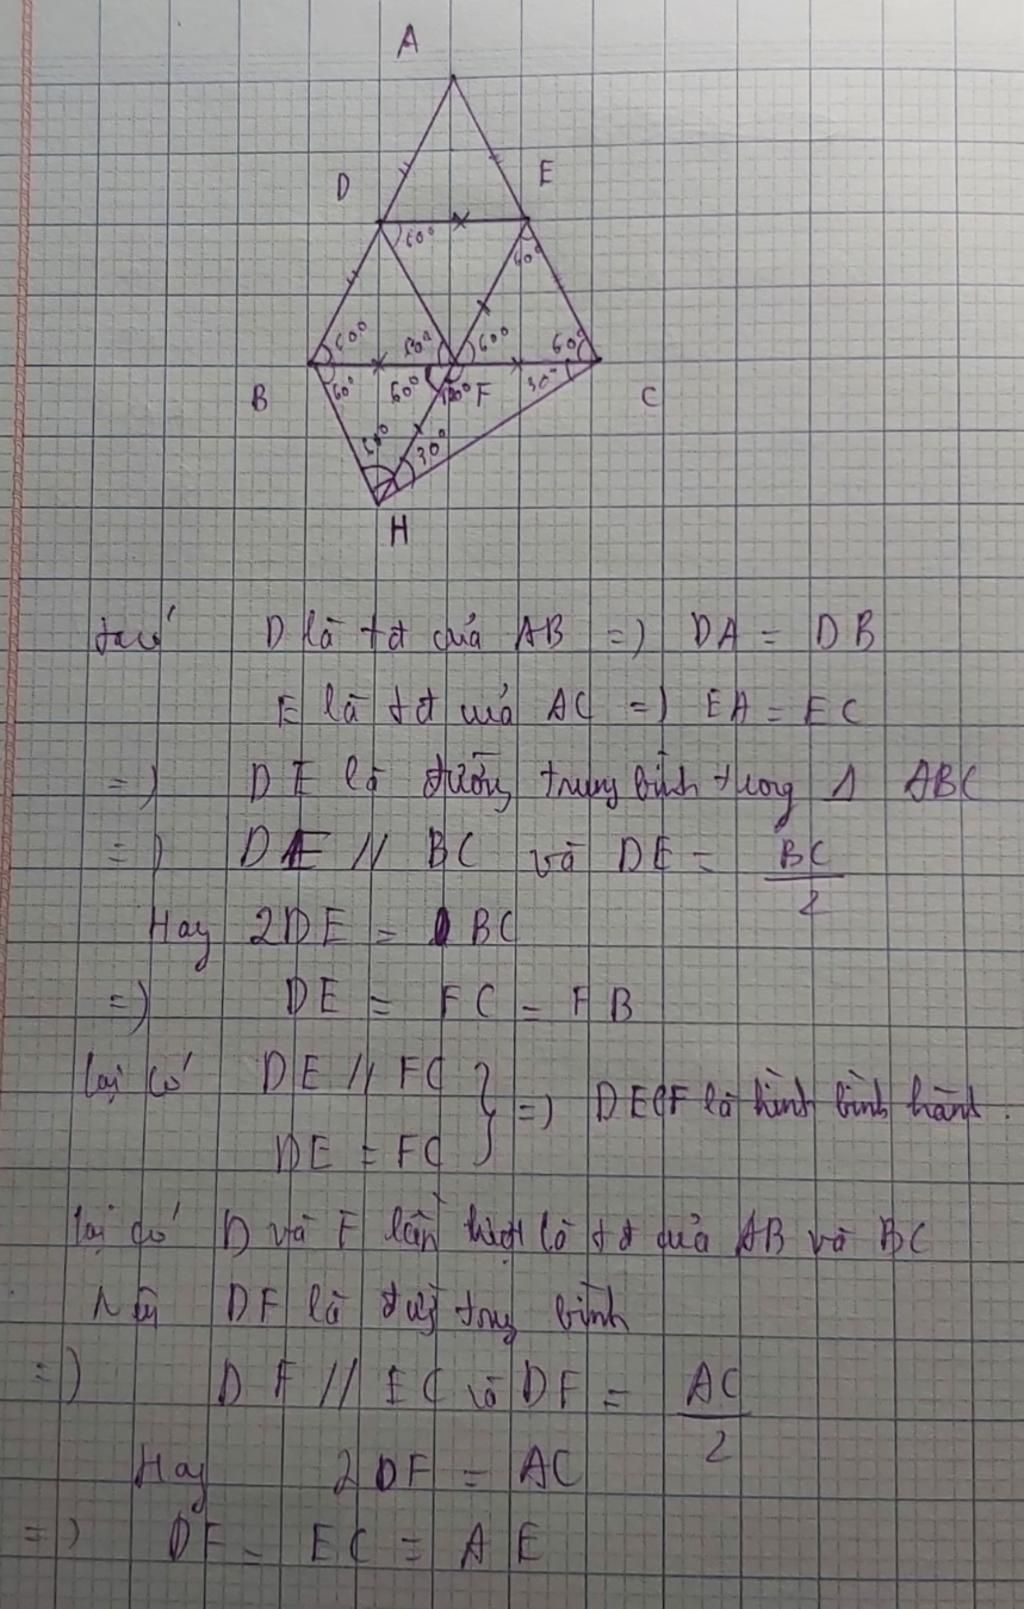 A
D
E
60°
60°
60°
60°
60°
60°
B
60°
60°
F
30°
C
30°
H
ta có D là tđ của AB => DA = DB
E là tđ của AC => EA = EC
=> DE là đường trung bình trong Δ ABC
=> DE // BC và DE = BC/2
Hay 2DE = BC
=> DE = FC = FB
lại có DE // FC
DE = FC } => DECF là hình bình hành.
lại có D và F lần lượt là tđ của AB và BC
Nên DF là đg trung bình
=> DF // EC và DF = AC/2
Hay 2DF = AC
=> DF = EC = AE